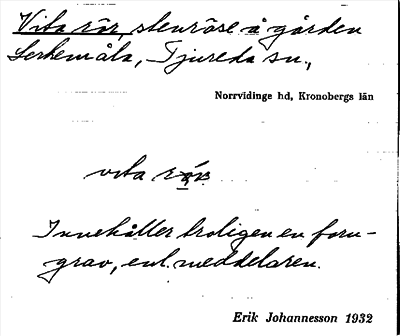 Vita rör, stenröse å gården
Lerkemåla, Tjureda sn.,
Norrvidinge hd, Kronobergs län
vita rö̀r.
Innehåller troligen en forn-
grav, enl. meddelaren.
Erik Johannesson 1932